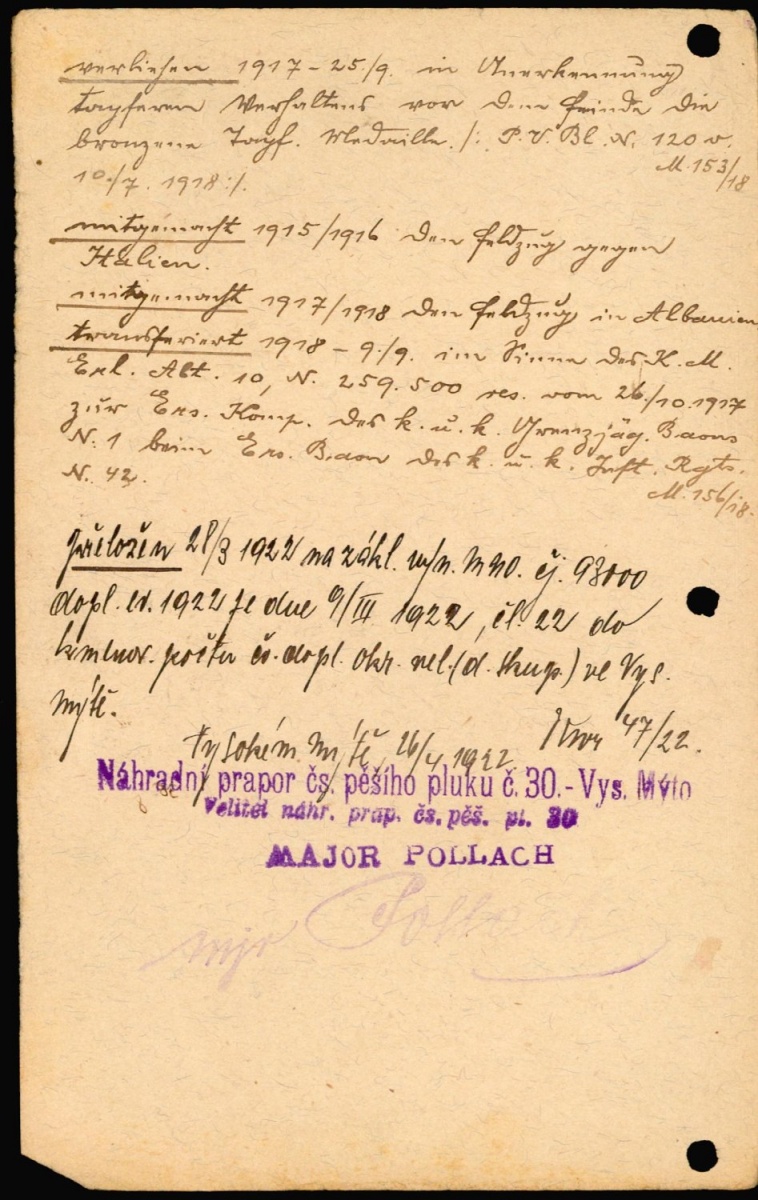 verliehen 1917 – 25./9. in Anerkennung
tapferen Verhaltens vor dem Feinde die
bronzene Tapf. Medaille. /: P. V. Bl. N. 120 v.
10./7. 1918 :/. M. 153/18
mitgemacht 1915/1916 den Feldzug gegen
Italien.
mitgemacht 1917/1918 den Feldzug in Albanien
transferiert 1918 – 9./9. im Sinne des K. M.
Erl. Abt. 10, N. 259.500 res. vom 26./10.1917
zur Ers. Komp. des k. u. k. Grenzjäg. Baons
N. 1 beim Ers. Baon des k. u. k. Inft. Rgts.
N. 42. M. 156/18.
Přeložen 28/3 1922 na zákl. výn. MNO. čj. 93000
dopl. 1922 ze dne 9/III 1922, čl. 22 do
kmenov. počtu dopl. okr. vel. (d. skup.) ve Vys.
Mýtě.
Vysokém Mýtě, 26/4 1922. 47/22.
Náhradní prapor čs. pěšího pluku č. 30.- Vys. Mýto
Velitel náhr. prap. čs. pěš. pl. 30
MAJOR POLLACH
mjr Pollach